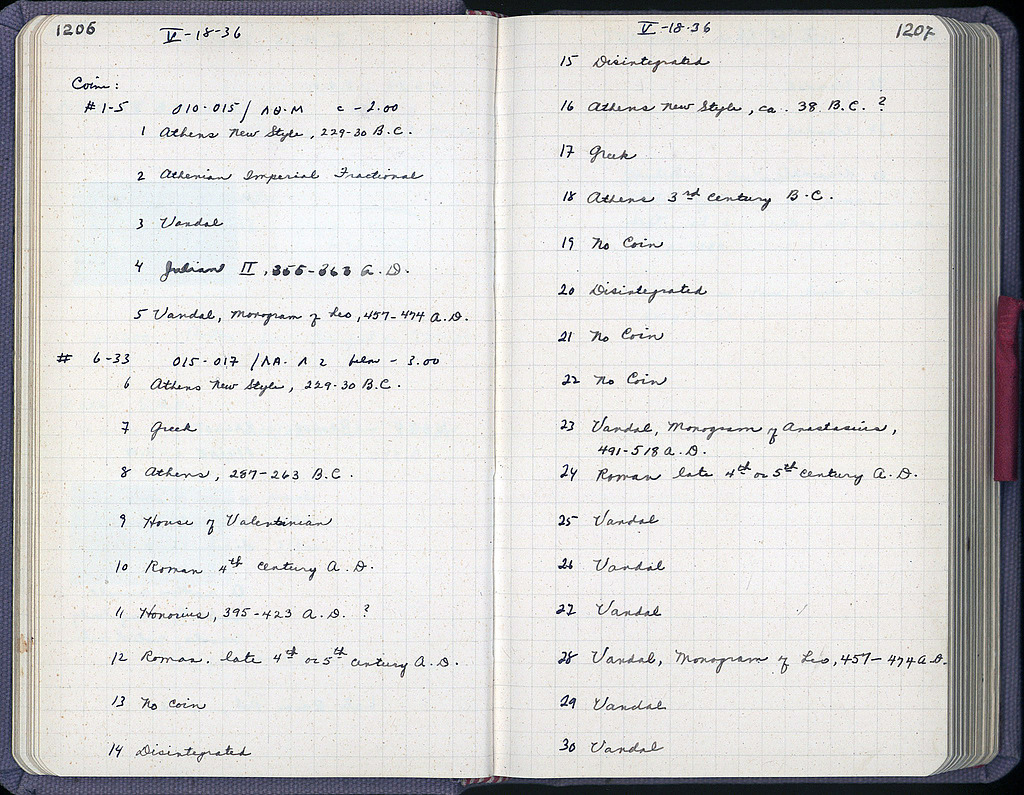 1206
V-18-36
Coins:
#1-5 010-015/ΛΘ-M c - 2.00
1 Athens New Style, 229-30 B.C.
2 Athenian Imperial Fractional
3 Vandal
4 Julian II, 355-363 A.D.
5 Vandal, Monogram of Leo, 457-474 A.D.
# 6-33 015-017 /ΛA- Λ 2 - 3.00
6 Athens New Style, 229-30 B.C.
7 Greek
8 Athens, 287-263 B.C.
9 House of Valentinian
10 Roman 4th Century A.D.
11 Honorius, 395-423 A.D. ?
12 Roman. late 4th or 5th Century A.D.
13 No Coin
14 Disintegrated
V-18-36
1207
15 Disintegrated
16 Athens New Style, ca. 38 B.C. ?
17 Greek
18 Athens 3rd Century B.C.
19 No Coin
20 Disintegrated
21 No Coin
22 No Coin
23 Vandal, Monogram of Anastasius,
491-518 A.D.
24 Roman late 4th or 5th Century A.D.
25 Vandal
26 Vandal
27 Vandal
28 Vandal, Monogram of Leo, 457-474 A.D.
29 Vandal
30 Vandal